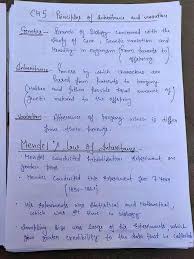 Ch-5 Principles of Inheritance and variation
Genetics - Branch of Biology concerned with the
Study of Gene, Genetic variation and
Heredity in organism (from parents to
offspring)
Inheritance - Process by which characters are
passed from parents to progeny
(Mother and father provide equal amounts of
to offspring)
Variation - Difference of progeny which is differ
from their parents.
Mendel's Law of Inheritance:-
Mendel conducted hybridisation experiment on
garden peas
Mendel conducted the experiment for 7 years
(1856-1863)
experiments was statistical and Mathematical,
which was 1st time in biology
Sampling size was large of his experiments which
gave greater credibility to the data that he collected